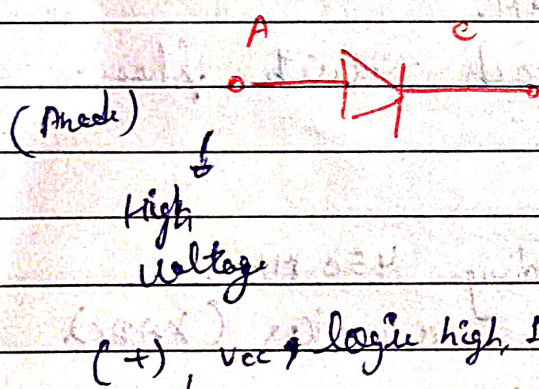 A C
(Anode)
High
Voltage
(+), Vcc, logic high, 1